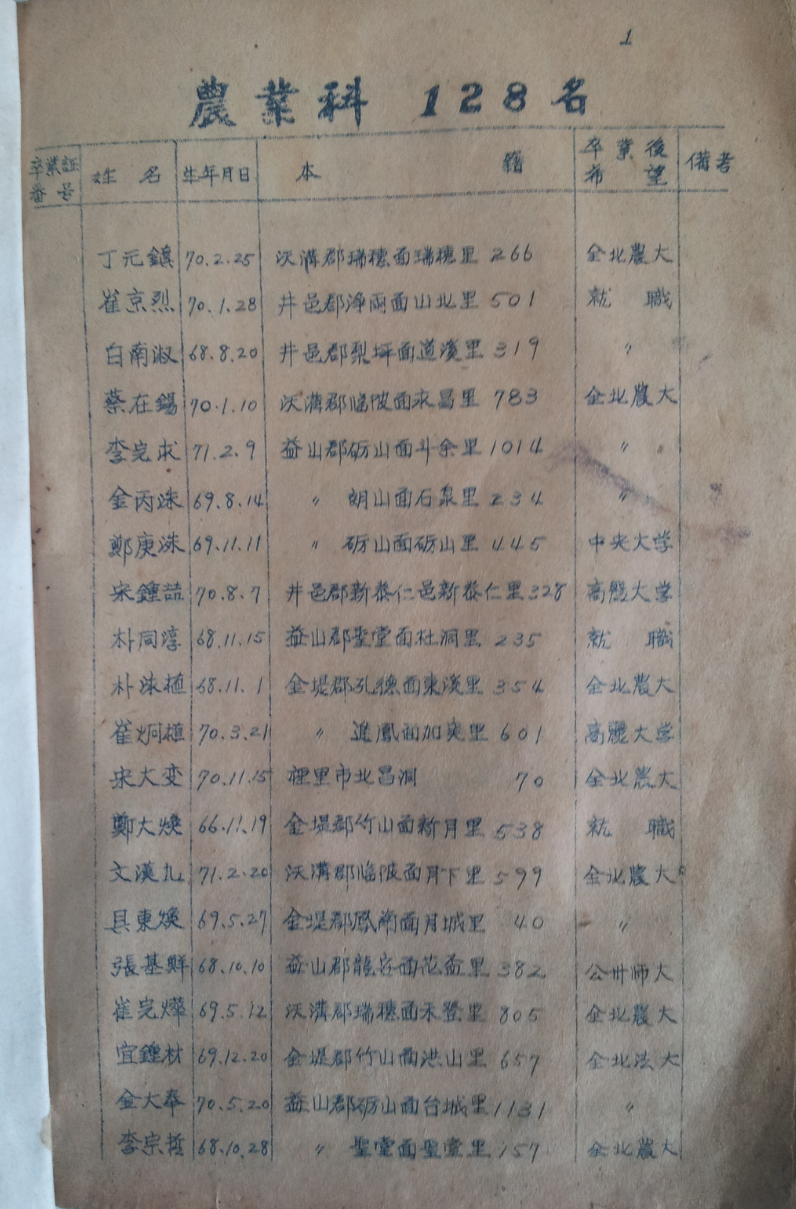 1
農業科 128名
卒業証番号 姓名 生年月日 本籍 卒業後希望 備考
丁元鎭 70.2.25 沃溝郡瑞穗面瑞穗里 266 全北農大
崔京烈 70.1.28 井邑郡淨雨面山北里 501 就職
白南淑 68.8.20 井邑郡梨坪面道溪里 319 〃
蔡在錫 70.1.10 沃溝郡臨陂面永昌里 783 全北農大
李完求 71.2.9 益山郡砺山面斗余里 1014 〃 〃
金丙洙 69.8.14 〃 朗山面石泉里 234 〃
鄭庚洙 69.11.11 〃 砺山面砺山里 445 中央大学
宋鍾喆 70.8.7 井邑郡新泰仁邑新泰仁里 328 高麗大学
朴同淳 68.11.15 益山郡聖堂面杜洞里 235 就職
朴洙植 68.11.1 金堤郡孔德面東溪里 354 全北農大
崔炯植 70.3.21 〃 進鳳面加実里 601 高麗大学
宋大变 70.11.15 裡里市北昌洞 70 全北農大
鄭大煥 66.11.19 金堤郡竹山面新月里 538 就職
文漢九 71.2.20 沃溝郡臨陂面月下里 599 全北農大
具東煥 69.5.27 金堤郡鳳南面月城里 40 〃
張基鮮 68.10.10 益山郡龍安面花盃里 382 公州師大
崔完燁 69.5.12 沃溝郡瑞穗面禾登里 805 全北農大
宜鍾材 69.12.20 金堤郡竹山面洪山里 657 全北法大
金大奉 70.5.20 益山郡砺山面台城里 1131 〃
李宗哲 68.10.28 〃 聖堂面聖堂里 157 全北農大